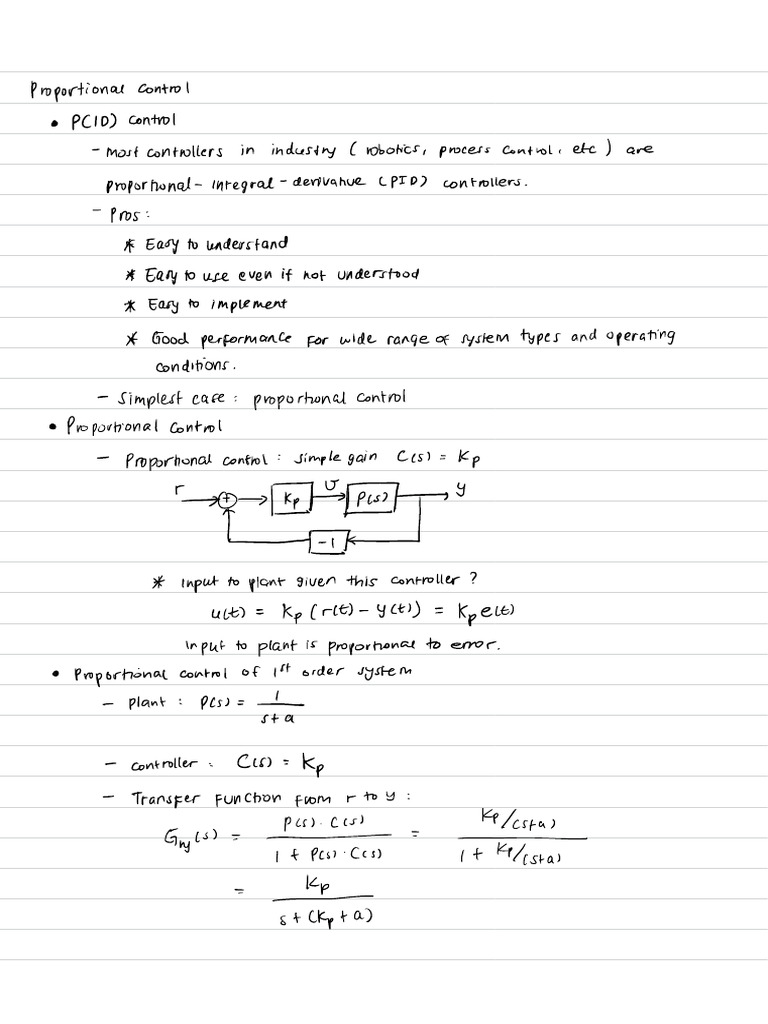 Proportional control
• P(ID) control
- Most controllers in industry ( robotics, process control, etc ) are
proportional - integral - derivative (PID) controllers.
- Pros :
* Easy to understand
* Easy to use even if not understood
* Easy to implement
* Good performance for wide range of system types and operating
conditions.
- Simplest case : proportional control
• Proportional control
- Proportional control : simple gain C(s) = Kp
r + Kp U P(s) y
-1
* Input to plant given this controller ?
u(t) = Kp (r(t) - y(t)) = Kp e(t)
Input to plant is proportional to error.
• Proportional control of 1st order system
- plant : P(s) = 1 / (s+a)
- controller : C(s) = Kp
- Transfer function from r to y :
Gry(s) = P(s) · C(s) / (1 + P(s) · C(s)) = Kp/(s+a) / (1 + Kp/(s+a))
= Kp / (s + (Kp + a))